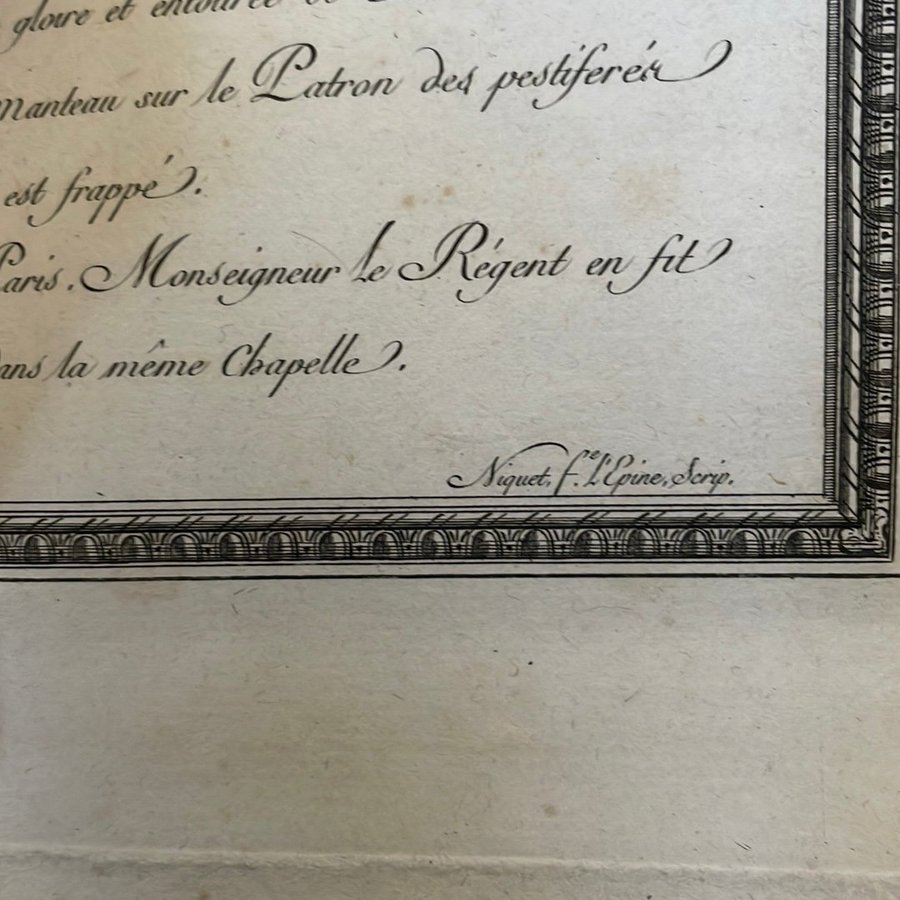 gloire et entourée
manteau sur le Patron des pestiferés
est frappé.
Paris. Monseigneur le Régent en fit
dans la même Chapelle.
Niquet, f.e l'Epine, Scrip.